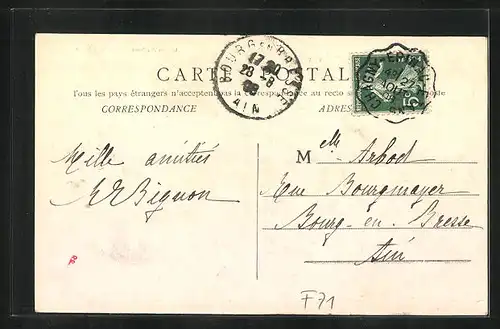 CARTE POSTALE
Tous les pays étrangers n'acceptent pas la correspondance au recto
CORRESPONDANCE
ADRESSE
BOURG EN BRESSE
17
28 - 8
AIN
5
Mille amitiés
Bignon
Melle Arbod
Rue Bourgmayer
Bourg-en-Bresse
Ain
F71